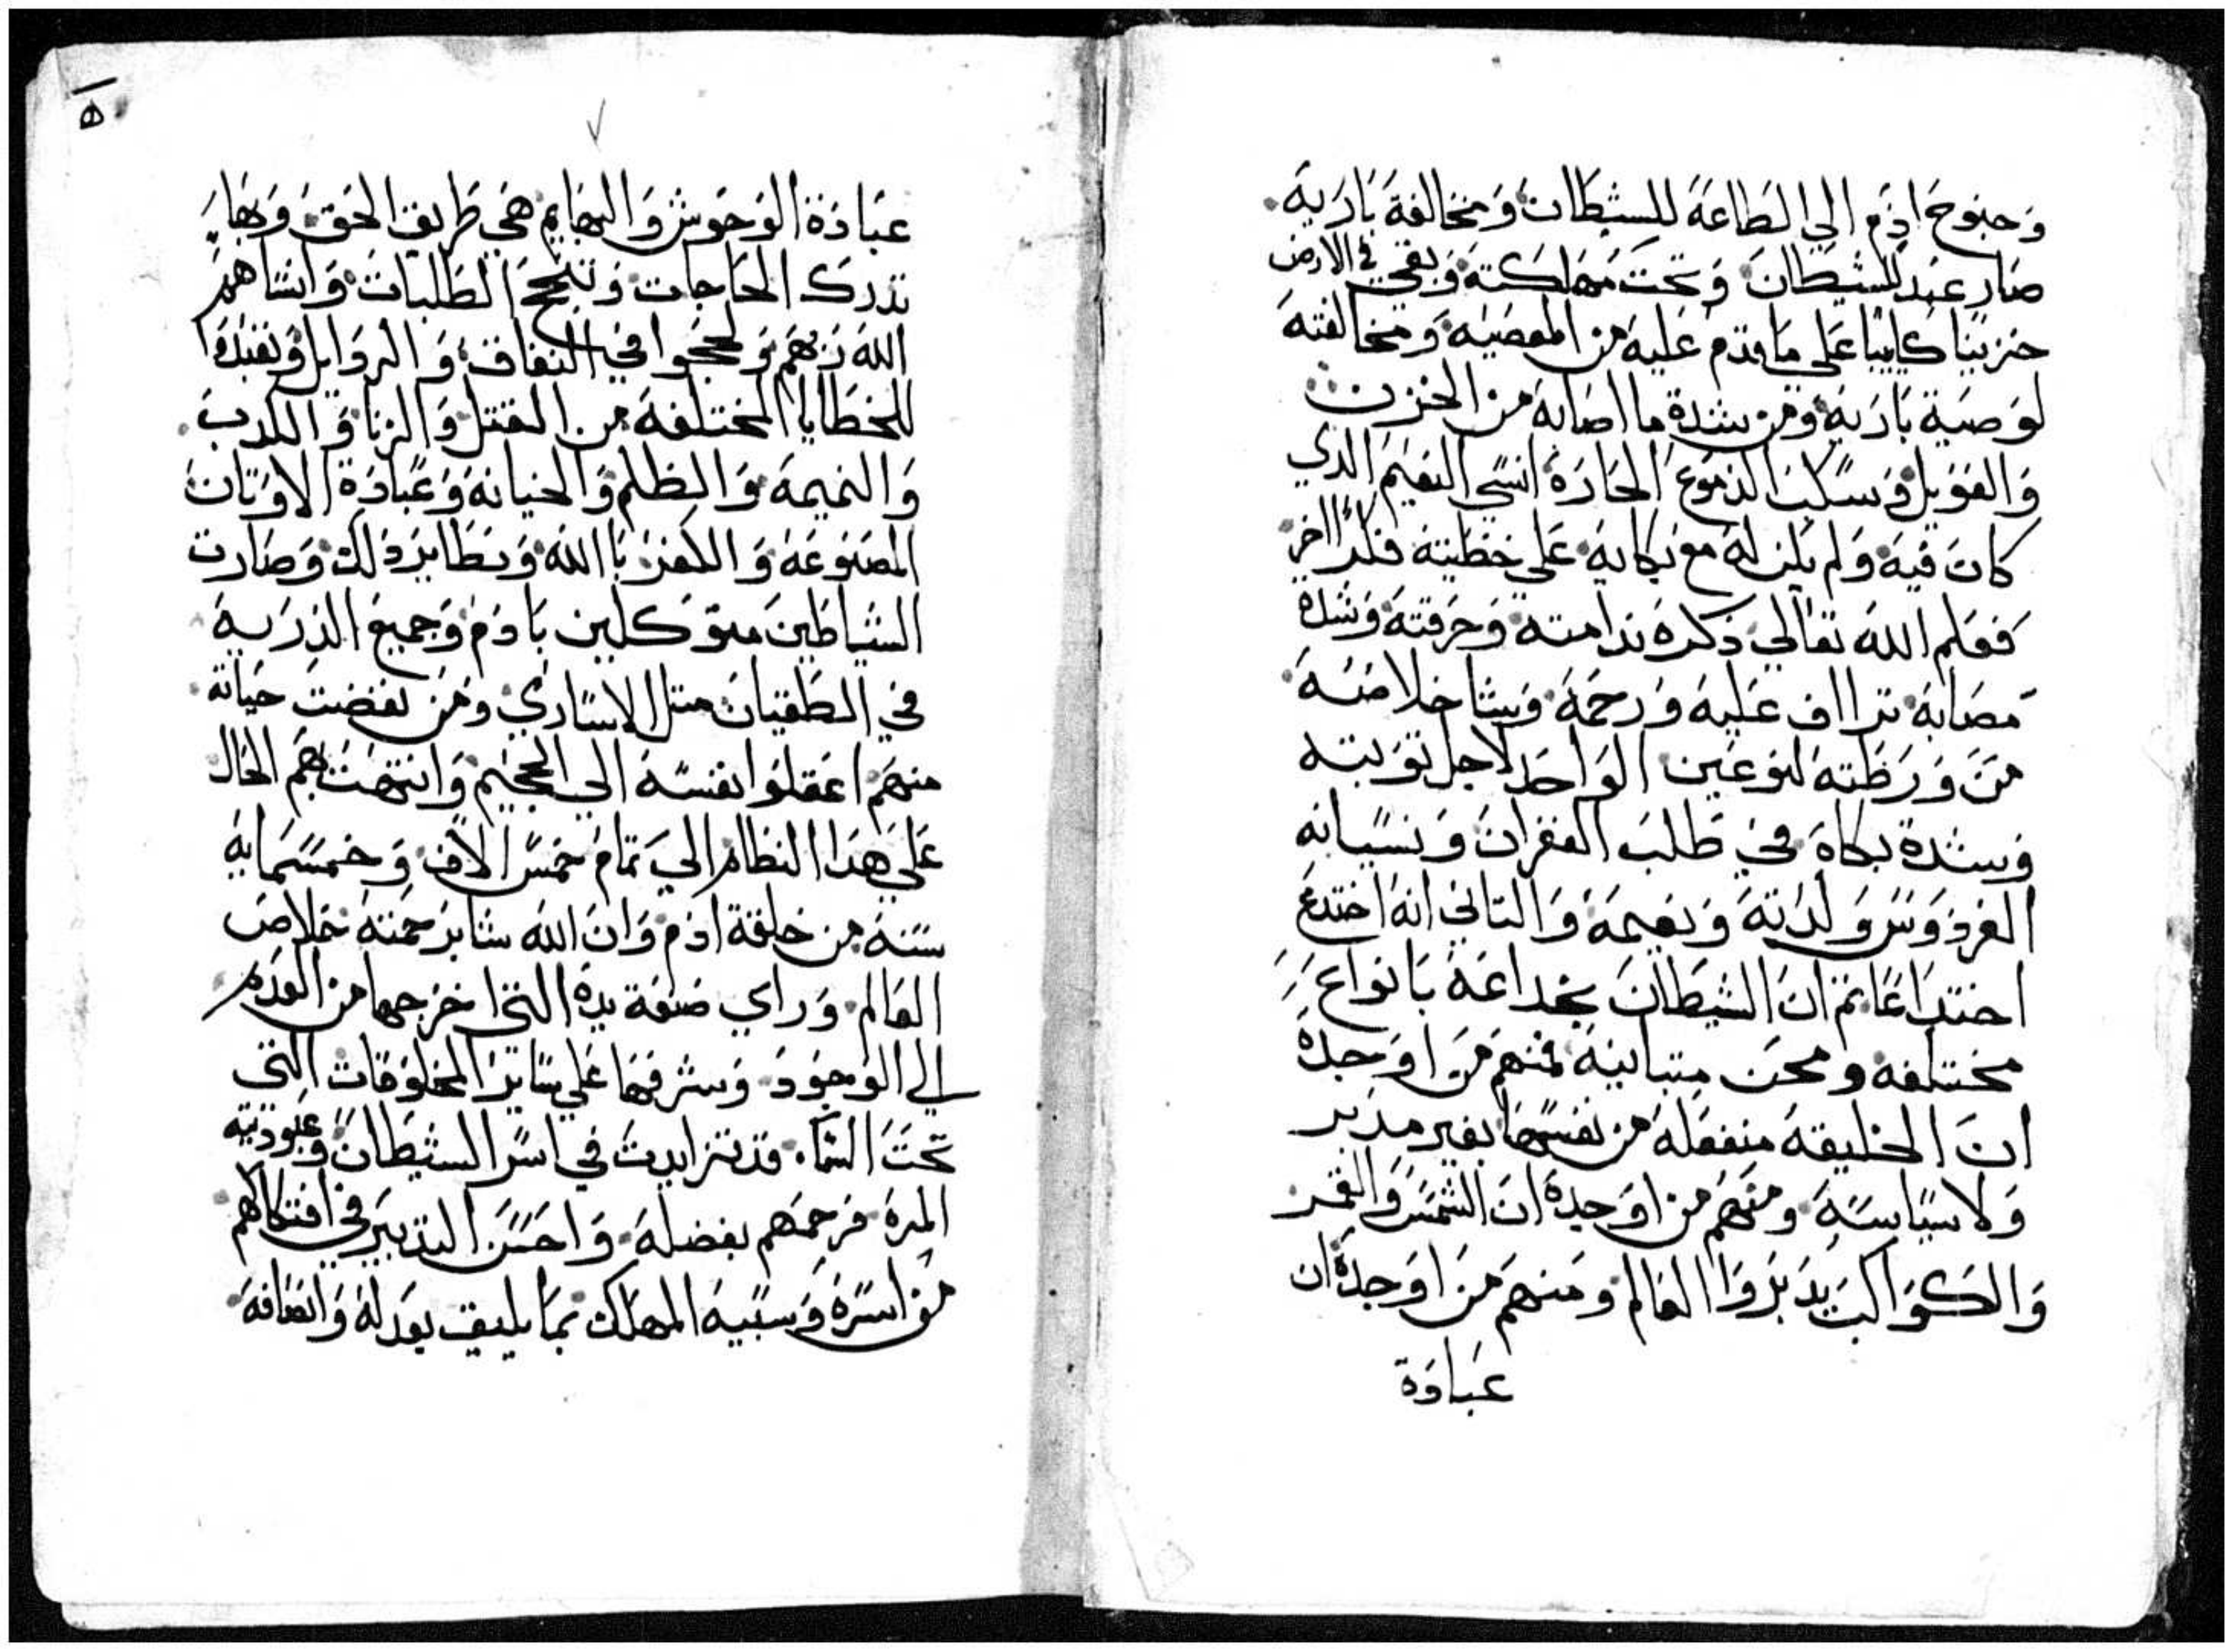 وجنوح ادم الي الطاعة للشيطان ومخالفة باريه
صار عبد للشيطان وتحت مهلكته وبقي في الارض
حزينا كايبا علي ما قدم عليه من المعصيه ومخالفته
لوصية باريه ومن شدة ما اصابه من الحزن
والعويل وسكب الدموع الحارة انسي النعيم الدي
كان فيه ولم يكن له مع بكايه علي خطيته فكرا اخر
فعلم الله تعالي ذكره ندامته وحرقته وشدة
مصابه تراف عليه ورحمه وشا خلاصه
من ورطته لنوعين الواحد لاجل توبته
وشدة بكاه في طلب الغفران ونسيانه
الفردوس ولداته ونعيمه والتاني انه اختدع
اختداعا تم ان الشيطان بخداعه بانواع
مختلفه ومحن متباينه فمنهم من اوجده
ان الخليقه منفعله من نفسها بغير مدبر
ولا سياسه ومنهم من اوجده ان الشمس والقمر
والكواكب يدبروا العالم ومنهم من اوجده ان
عبادة
٥
عبادة الوحوش والبهايم هي طريق الحق وبها
تدرك الحاجات وتنجح الطلبات وانساهم
الله ربهم ولججوا في النفاق والردايل وتعبدوا
للخطايا المختلفه من القتل والزنا والكدب
والنميمة والظلم والخيانه وعبادة الاوتان
المصنوعه والكفر باالله ونظاير ذلك وصارت
الشياطين متوكلين بادم وجميع الذريه
في الطغيان متل الاساري ومن نفضت حياته
منهم اعقلوا نفسه الي الجحيم وانتهت بهم الحال
علي هدا النظام الي تمام خمس الاف وخمسمايه
سنه من خلقة ادم وان الله شا برحمته خلاص
العالم وراي صنعة يده التي اخرجها من العدم
الي الوجود وشرفها علي ساير المخلوقات التي
تحت السماء قد تزايدت في اسر الشيطان وعبوديته
المرة فرحمهم بفضله واحسن التدبير في افتكاكهم
من اسره وسبيه المهلك بما يليق بعدله وانصافه